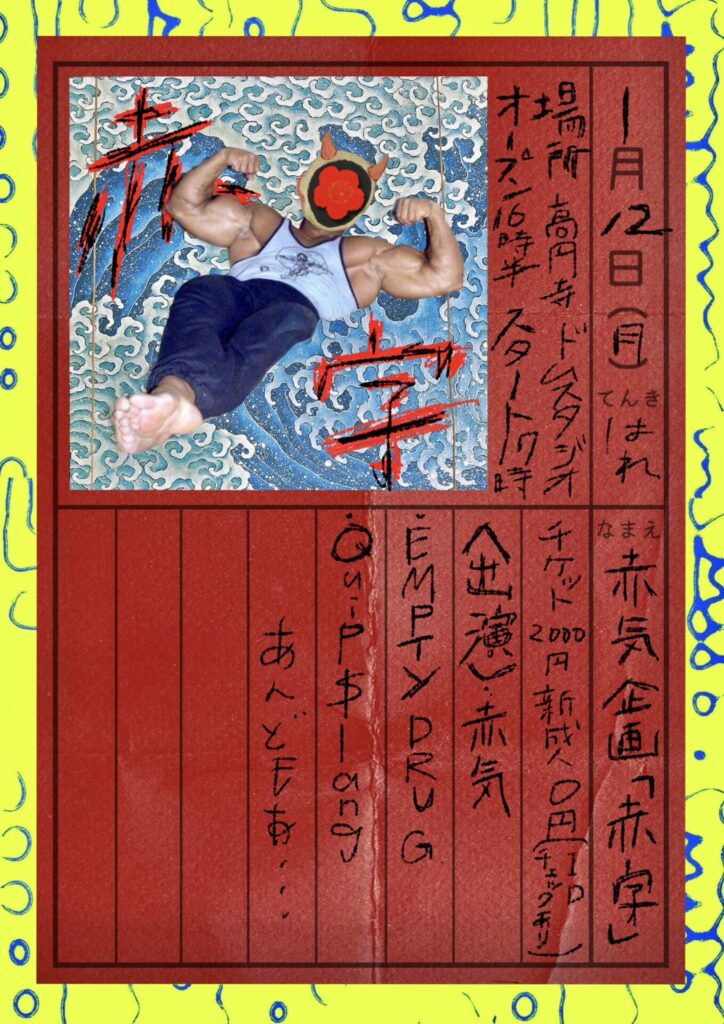 1月12日(月)
てんき
はれ
場所 高円寺 ドムスタジオ
オープン16時半 スタート17時
赤字
なまえ
赤気 企画「赤字」
チケット2000円 新成人0円(IDチェックあり)
〈出演〉・赤気
・EMPTY DRUG
・Quip$lang
あんどもあ・・・